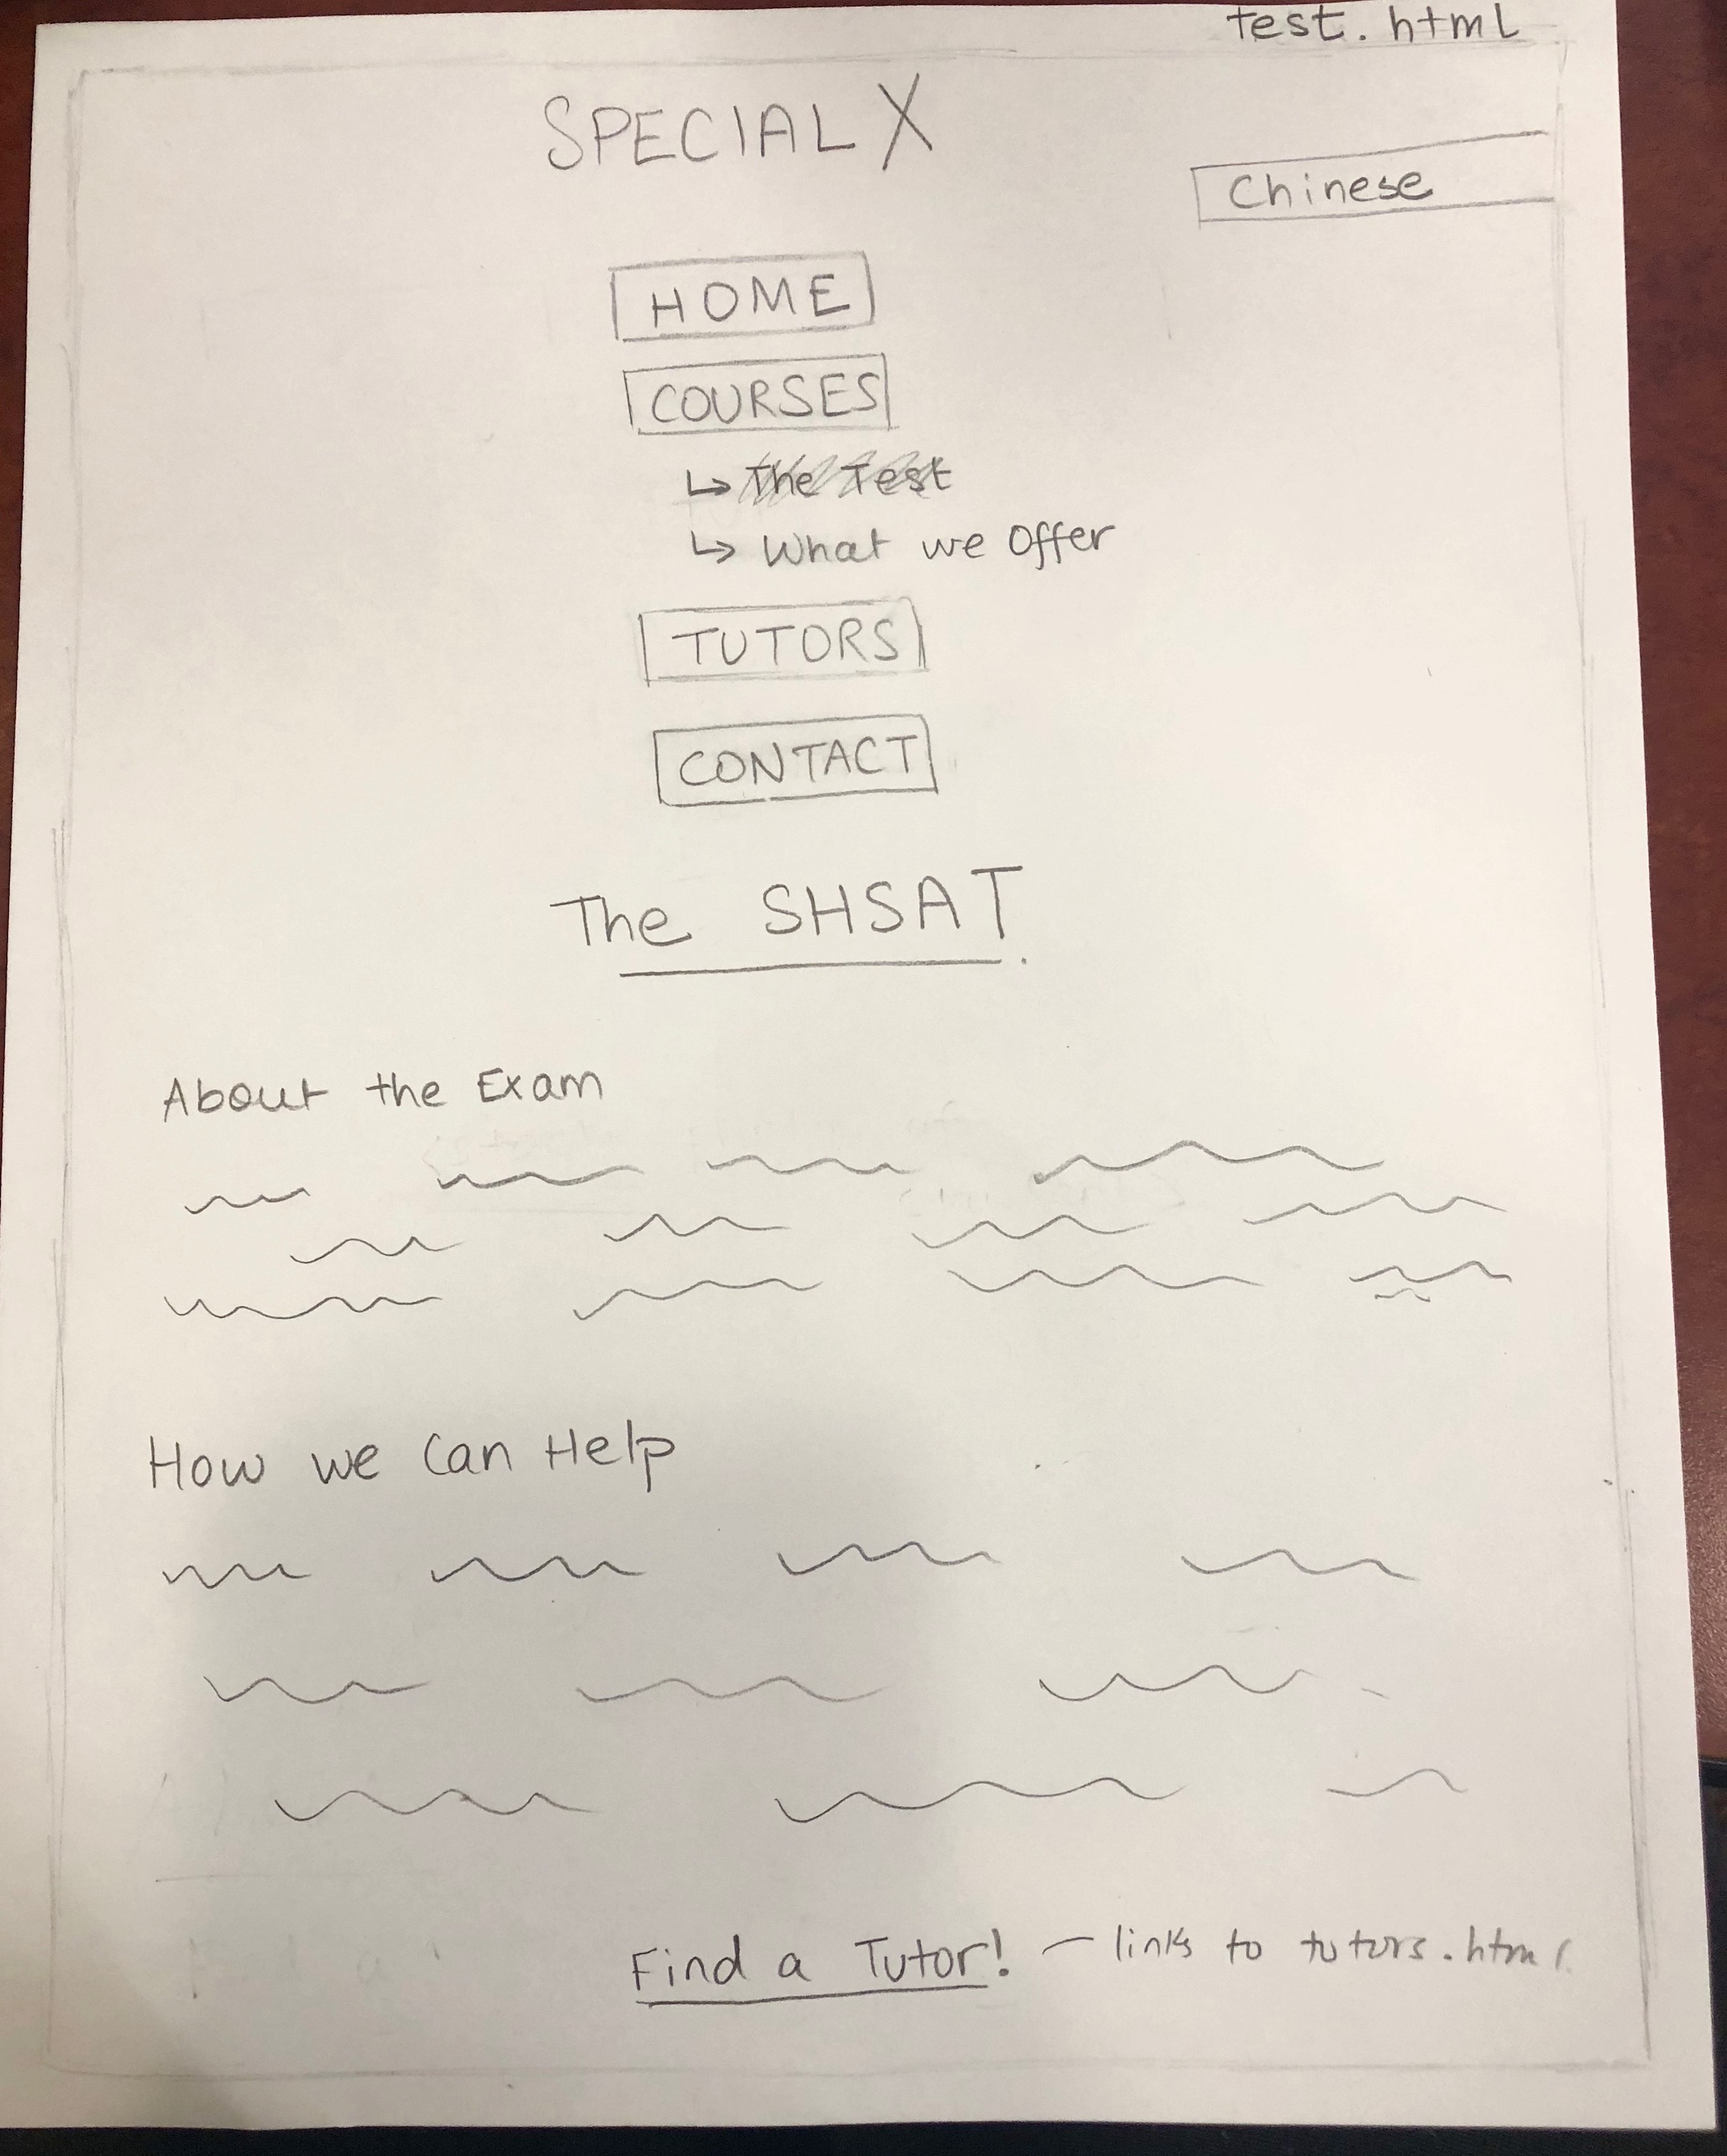 test.html
SPECIAL X
Chinese
HOME
COURSES
↳ The Test
↳ What we Offer
TUTORS
CONTACT
The SHSAT
About the Exam
How we Can Help
Find a Tutor! — links to tutors.html